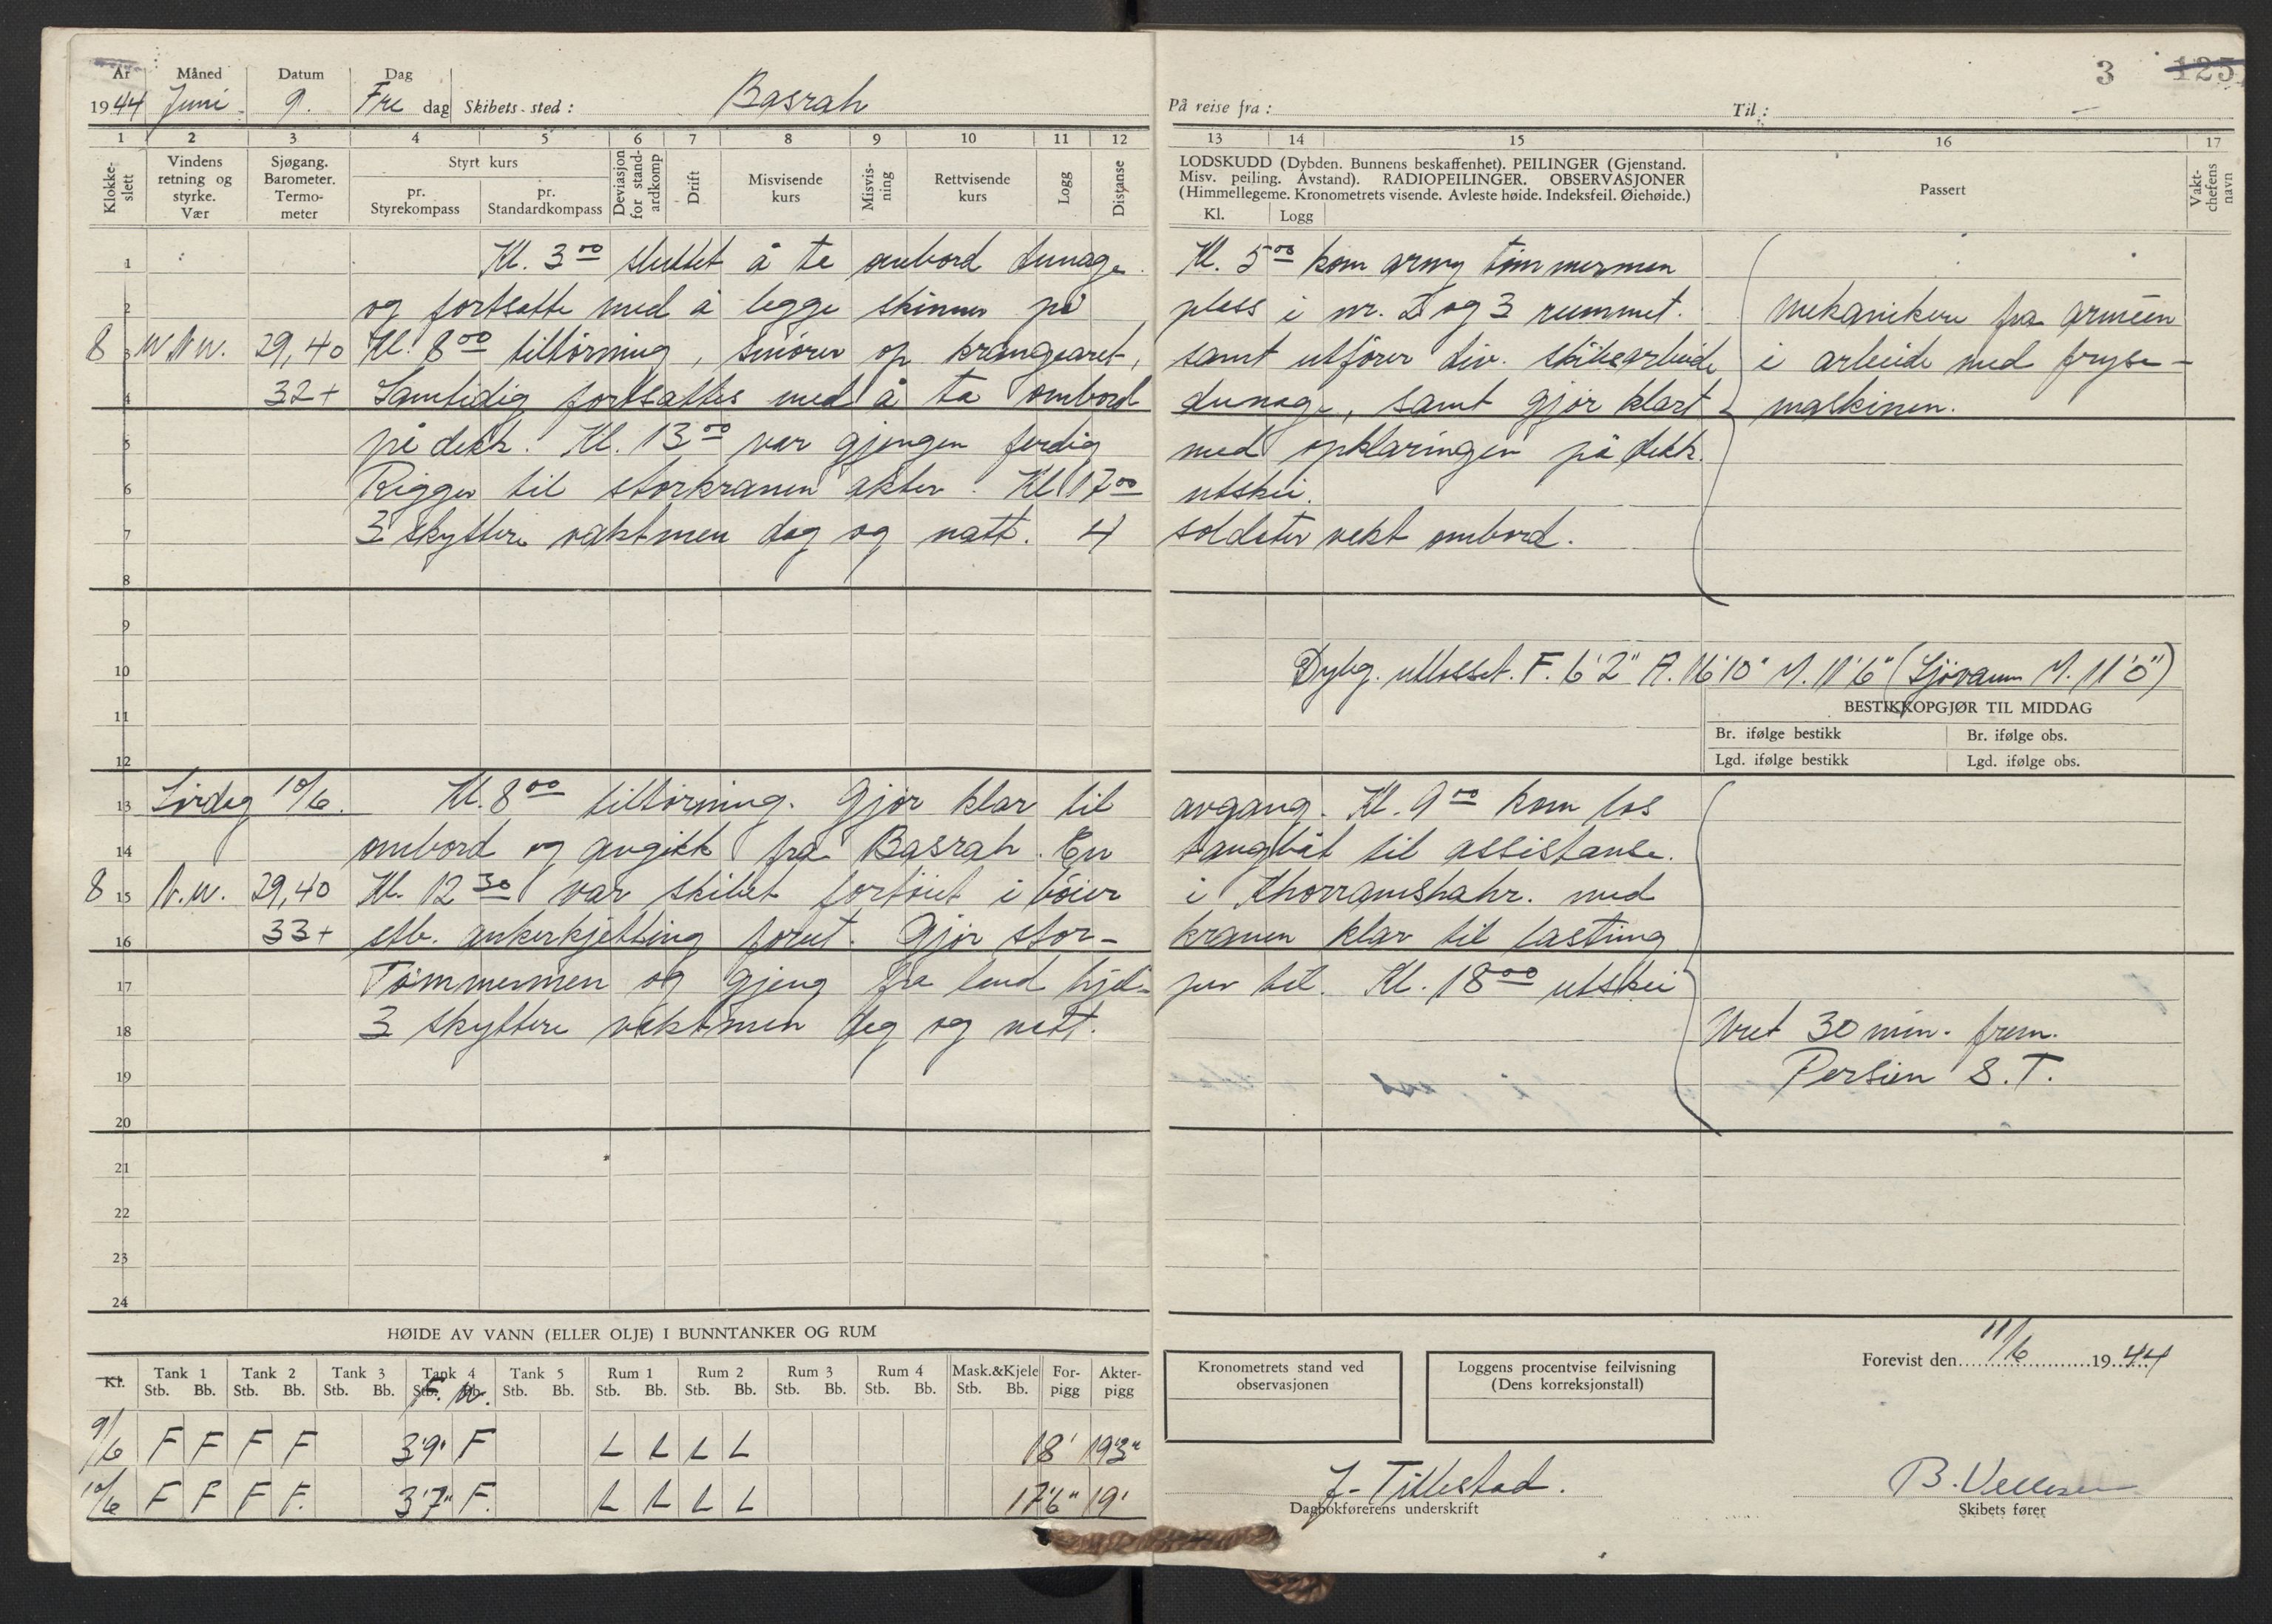 3 125
År Måned Datum Dag
1944 Juni 9. Fre dag Skibets sted: Basrah På reise fra: Til: —
1 2 3 4 5 6 7 8 9 10 11 12 13 14 15 16 17
Klokkeslett
Vindens retning og styrke. Vær
Sjøgang. Barometer. Termometer
Styrt kurs
pr. Styrekompass
pr. Standardkompass
Deviasjon for standardkomp
Drift
Misvisende kurs
Misvisning
Rettvisende kurs
Logg
Distanse
LODSKUDD (Dybden. Bunnens beskaffenhet). PEILINGER (Gjenstand.
Misv. peiling. Avstand). RADIOPEILINGER. OBSERVASJONER
(Himmellegeme. Kronometrets visende. Avleste høide. Indeksfeil. Øiehøide.)
Kl. Logg
Passert
Vaktchefens navn
1 Kl. 3⁰⁰ sluttet å ta ombord dunage. Kl. 5⁰⁰ kom army tømmermen
2 og fortsatte med å legge skinner på plass i nr. 2 og 3 rummet. Mekanikere fra armeen
8 3 W N W. 29,40 Kl. 8⁰⁰ tiltørning, smører op krangearet, samt utfører div. skibsarbeide i arbeide med fryse-
4 32+ Samtidig fortsattes med å ta ombord dunage, samt gjør klart maskinen.
5 på dekk. Kl. 13⁰⁰ var gjengen ferdig med opklaringen på dekk.
6 Rigger til storkranen akter. Kl 17⁰⁰ utskei.
7 3 skyttere vaktmen dag og natt. 4 soldater vakt ombord.
8
9
10 Dybg. utlosset. F. 6'2" A. 16'10" M. 11'6" (Sjøvann M. 11'0")
11 BESTIKKOPGJØR TIL MIDDAG
Br. ifølge bestikk Br. ifølge obs.
12 Lgd. ifølge bestikk Lgd. ifølge obs.
13 Lørdag 10/6. Kl. 8⁰⁰ tiltørning. Gjør klar til avgang. Kl. 9⁰⁰ kom los
14 ombord og avgikk fra Basrah. En taugbåt til assistanse.
8 15 N.W. 29,40 Kl. 12³⁰ var skibet fortøiet i bøier i Khorramshahr. med
16 33+ stb. ankerkjetting forut. Gjør stor- kranen klar til lasting
17 Tømmermen og gjeng fra land hjel- per til. Kl. 18⁰⁰ utskei
18 3 skyttere vaktmen dag og natt. Uret 30 min. frem.
19 Persien S.T.
20
21
22
23
24
HØIDE AV VANN (ELLER OLJE) I BUNNTANKER OG RUM
Kl. Tank 1 Tank 2 Tank 3 Tank 4 Tank 5 Rum 1 Rum 2 Rum 3 Rum 4 Mask.&Kjele For- Akter-
Stb. Bb. Stb. Bb. Stb. Bb. Stb. Bb. Stb. Bb. Stb. Bb. Stb. Bb. Stb. Bb. Stb. Bb. Stb. Bb. pigg pigg
F. W.
9/6 F F F F 3'9" F L L L L 18' 19'3"
10/6 F F F F. 3'7" F. L L L L 17'6" 19'
Kronometrets stand ved
observasjonen
Loggens procentvise feilvisning
(Dens korreksjonstall)
Forevist den 11/6 1944
J. Tillestad.
Dagbokførerens underskrift
B.
Skibets fører